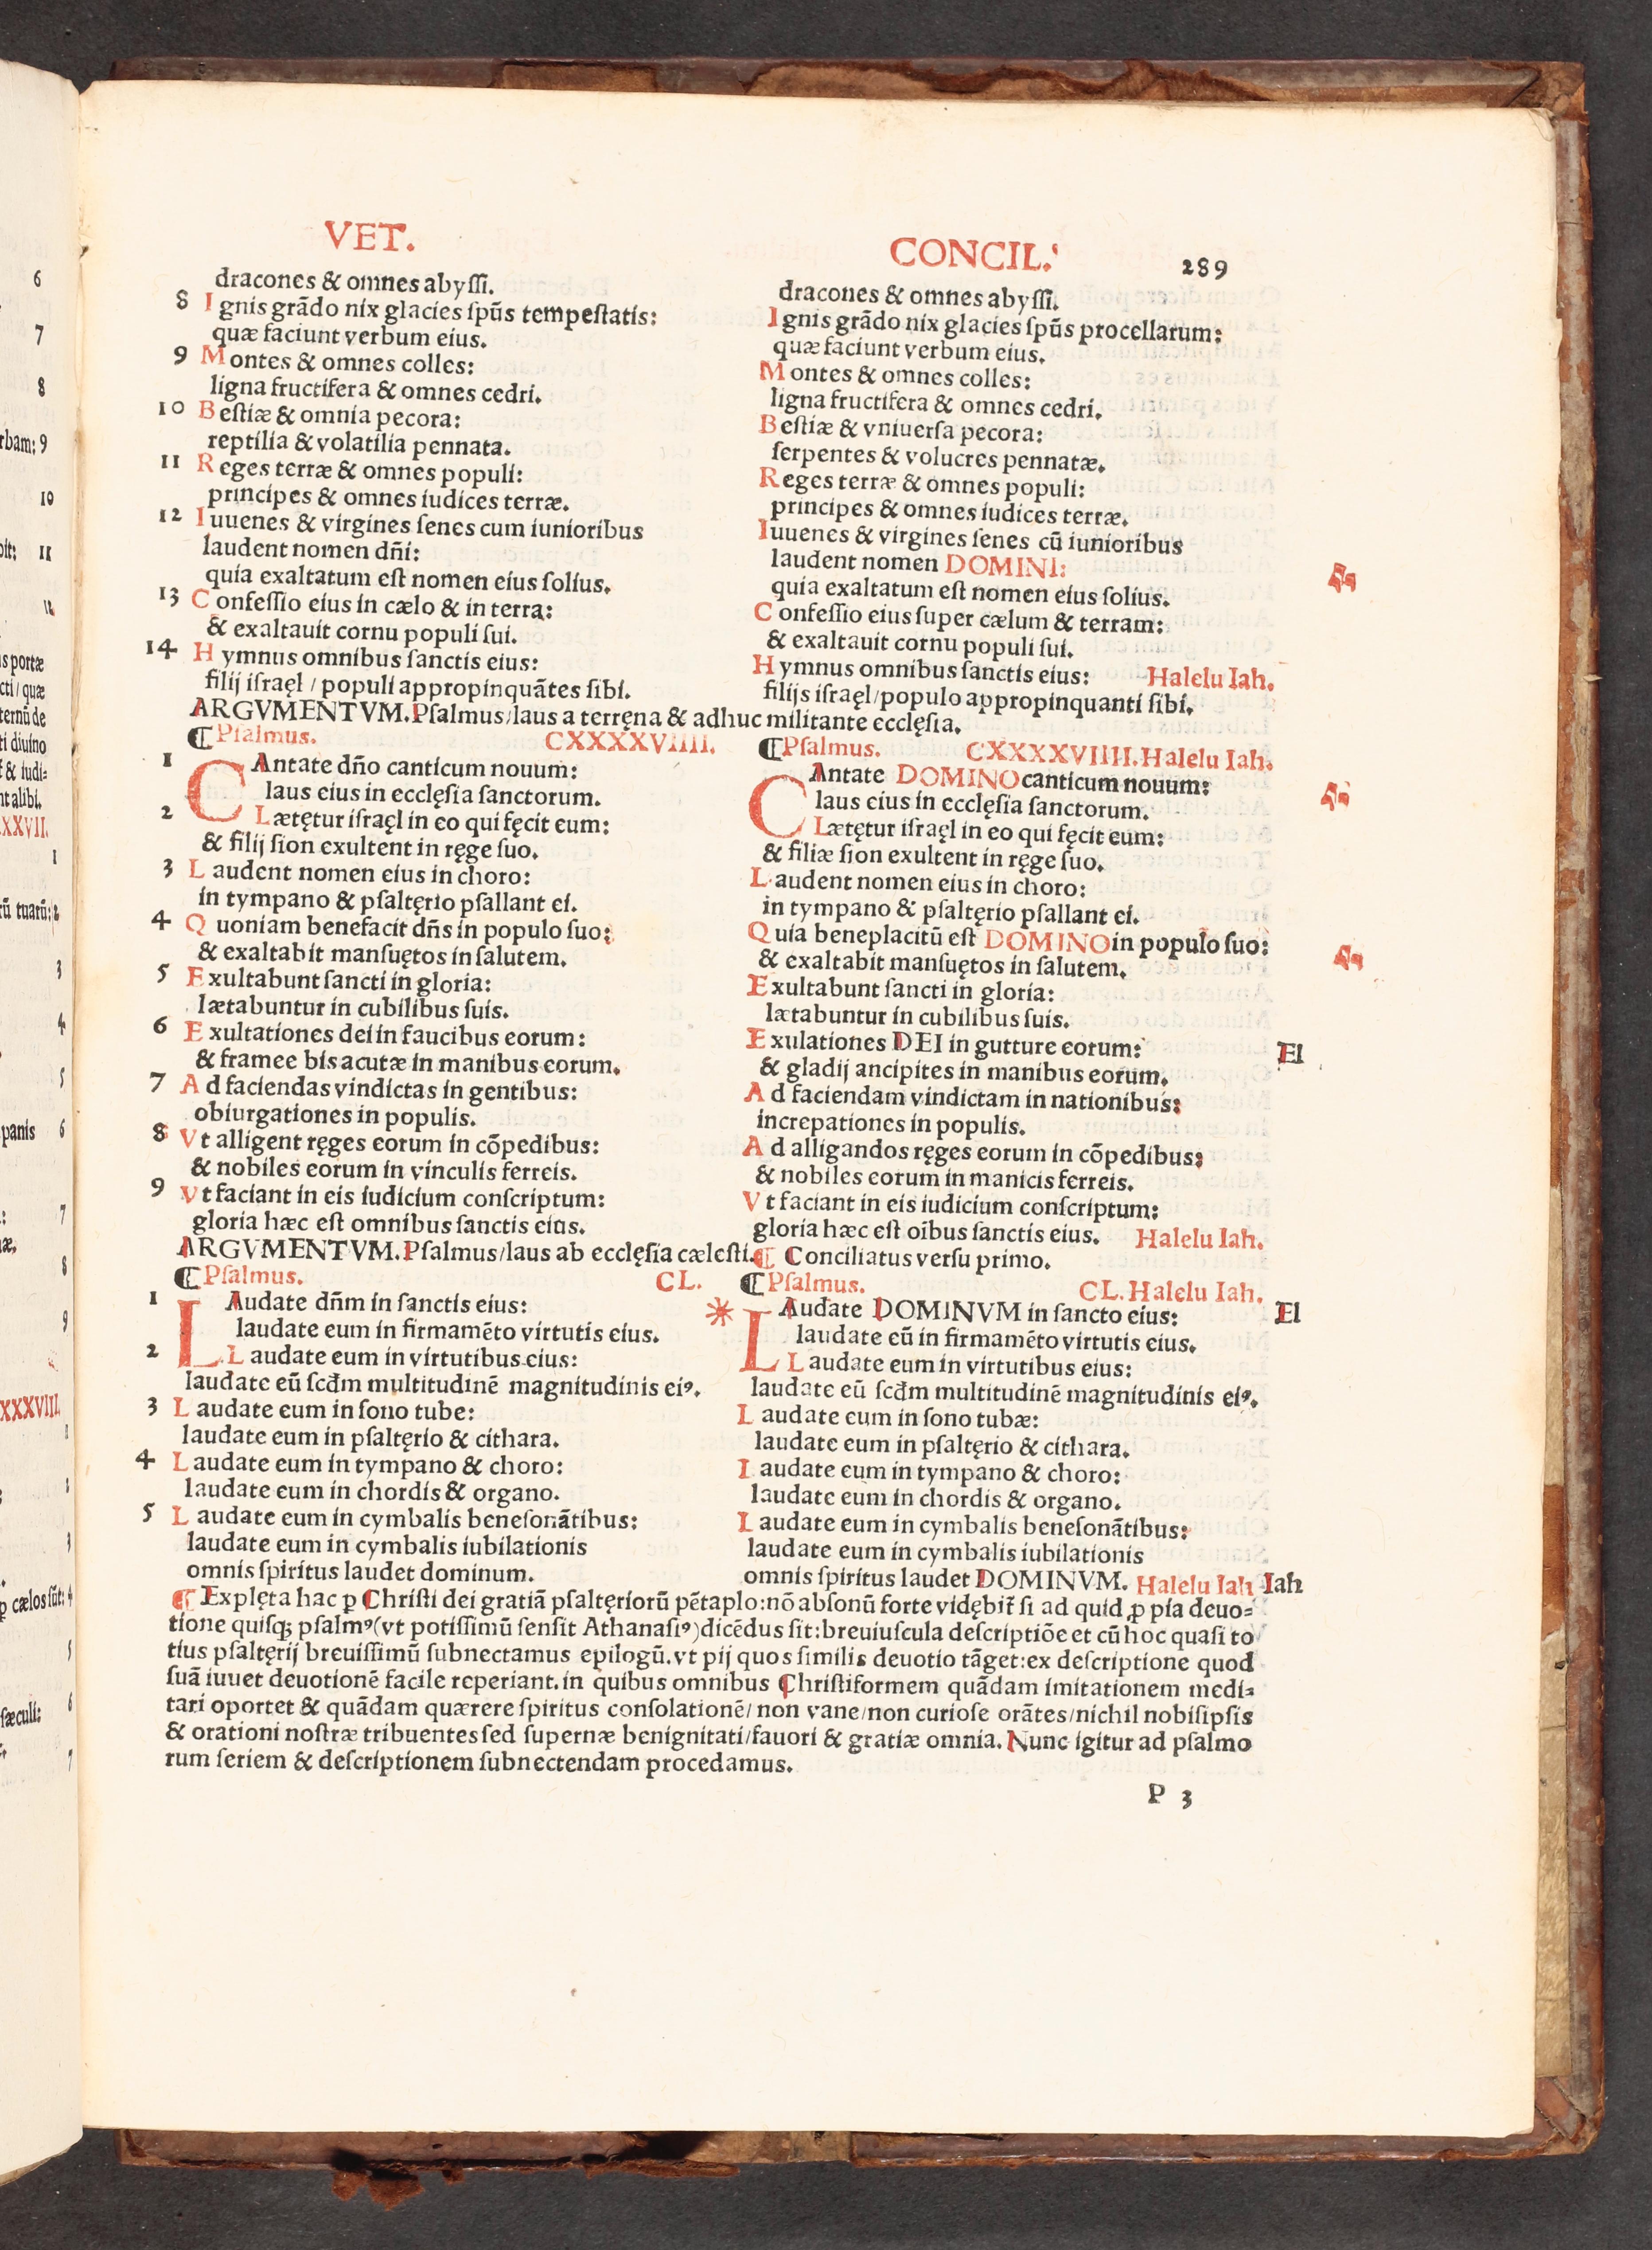 VET.
dracones & omnes abyſſi.
8 Ignis grãdo nix glacies ſpũs tempeſtatis:
quæ faciunt verbum eius.
9 Montes & omnes colles:
ligna fructifera & omnes cedri.
10 Beſtiæ & omnia pecora:
reptilia & volatilia pennata.
11 Reges terræ & omnes populi:
principes & omnes iudices terræ.
12 Iuuenes & virgines ſenes cum iunioribus
laudent nomen dñi:
quia exaltatum eſt nomen eius ſolius.
13 Confeſſio eius in cælo & in terra:
& exaltauit cornu populi ſui.
14 Hymnus omnibus ſanctis eius:
filij iſraęl / populi appropinquãtes ſibi.
CONCIL.
289
dracones & omnes abyſſi.
Ignis grãdo nix glacies ſpũs procellarum:
quæ faciunt verbum eius.
Montes & omnes colles:
ligna fructifera & omnes cedri.
Beſtiæ & vniuerſa pecora:
ſerpentes & volucres pennatæ.
Reges terræ & omnes populi:
principes & omnes iudices terræ.
Iuuenes & virgines ſenes cũ iunioribus
laudent nomen DOMINI:
quia exaltatum eſt nomen eius ſolius.
Confeſſio eius ſuper cælum & terram:
& exaltauit cornu populi ſui.
Hymnus omnibus ſanctis eius: Halelu Iah.
filijs iſraęl/populo appropinquanti ſibi.
ARGVMENTVM. Pſalmus/laus a terręna & adhuc militante eccleſia.
¶Pſalmus. CXXXXVIIII.
1 CAntate dño canticum nouum:
laus eius in eccleſia ſanctorum.
2 Lætętur iſraęl in eo qui fęcit eum:
& filij ſion exultent in ręge ſuo.
3 Laudent nomen eius in choro:
in tympano & pſaltęrio pſallant ei.
4 Quoniam benefacit dñs in populo ſuo:
& exaltabit manſuętos in ſalutem.
5 Exultabunt ſancti in gloria:
lætabuntur in cubilibus ſuis.
6 Exultationes dei in faucibus eorum:
& framee bis acutæ in manibus eorum.
7 Ad faciendas vindictas in gentibus:
obiurgationes in populis.
8 Vt alligent ręges eorum in cõpedibus:
& nobiles eorum in vinculis ferreis.
9 Vt faciant in eis iudicium conſcriptum:
gloria hæc eſt omnibus ſanctis eius.
ARGVMENTVM. Pſalmus/laus ab eccleſia cæleſti.
¶Pſalmus. CXXXXVIIII. Halelu Iah.
CAntate DOMINO canticum nouum:
laus eius in eccleſia ſanctorum.
Lætętur iſraęl in eo qui fęcit eum:
& filiæ ſion exultent in ręge ſuo.
Laudent nomen eius in choro:
in tympano & pſaltęrio pſallant ei.
Quia beneplacitũ eſt DOMINO in populo ſuo:
& exaltabit manſuętos in ſalutem.
Exultabunt ſancti in gloria:
lætabuntur in cubilibus ſuis.
Exulationes DEI in gutture eorum: El
& gladij ancipites in manibus eorum.
Ad faciendam vindictam in nationibus:
increpationes in populis.
Ad alligandos ręges eorum in cõpedibus:
& nobiles eorum in manicis ferreis.
Vt faciant in eis iudicium conſcriptum:
gloria hæc eſt oĩbus ſanctis eius. Halelu Iah.
¶ Conciliatus verſu primo.
¶Pſalmus. CL.
1 LAudate dñm in ſanctis eius:
laudate eum in firmamẽto virtutis eius.
2 Laudate eum in virtutibus eius:
laudate eũ ſcđm multitudinẽ magnitudinis eiꝰ.
3 Laudate eum in ſono tube:
laudate eum in pſaltęrio & cithara.
4 Laudate eum in tympano & choro:
laudate eum in chordis & organo.
5 Laudate eum in cymbalis beneſonãtibus:
laudate eum in cymbalis iubilationis
omnis ſpiritus laudet dominum.
¶Pſalmus. CL. Halelu Iah.
LAudate DOMINVM in ſancto eius: El
laudate eũ in firmamẽto virtutis eius.
Laudate eum in virtutibus eius:
laudate eũ ſcđm multitudinẽ magnitudinis eiꝰ.
Laudate eum in ſono tubæ:
laudate eum in pſaltęrio & cithara.
Laudate eum in tympano & choro:
laudate eum in chordis & organo.
Laudate eum in cymbalis beneſonãtibus:
laudate eum in cymbalis iubilationis
omnis ſpiritus laudet DOMINVM. Halelu Iah Iah
¶ Explęta hac ꝑ Chriſti dei gratiã pſaltęriorũ pẽtaplo: nõ abſonũ forte vidębit̃ ſi ad quid ꝓ pia deuo=
tione quiſqꝫ pſalmꝰ (vt potiſſimũ ſenſit Athanaſiꝰ) dicẽdus ſit: breuiuſcula deſcriptiõe et cũ hoc quaſi to
tius pſaltęrij breuiſſimũ ſubnectamus epilogũ. vt pij quos ſimilis deuotio tãget: ex deſcriptione quod
ſuã iuuet deuotionẽ facile reperiant. in quibus omnibus Chriſtiformem quãdam imitationem medi=
tari oportet & quãdam quærere ſpiritus conſolationẽ/ non vane/non curioſe orãtes/nichil nobiſipſis
& orationi noſtræ tribuentes ſed ſupernæ benignitati/fauori & gratiæ omnia. Nunc igitur ad pſalmo
rum ſeriem & deſcriptionem ſubnectendam procedamus.
P 3